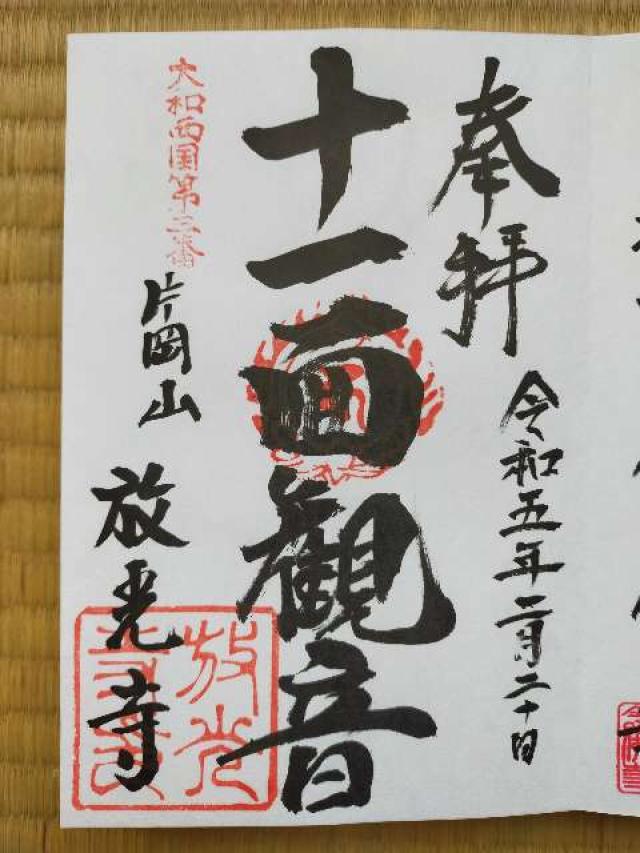 奉拝
令和五年二月二十日
十一面観音
大和西国第三番
片岡山
放光寺
放光